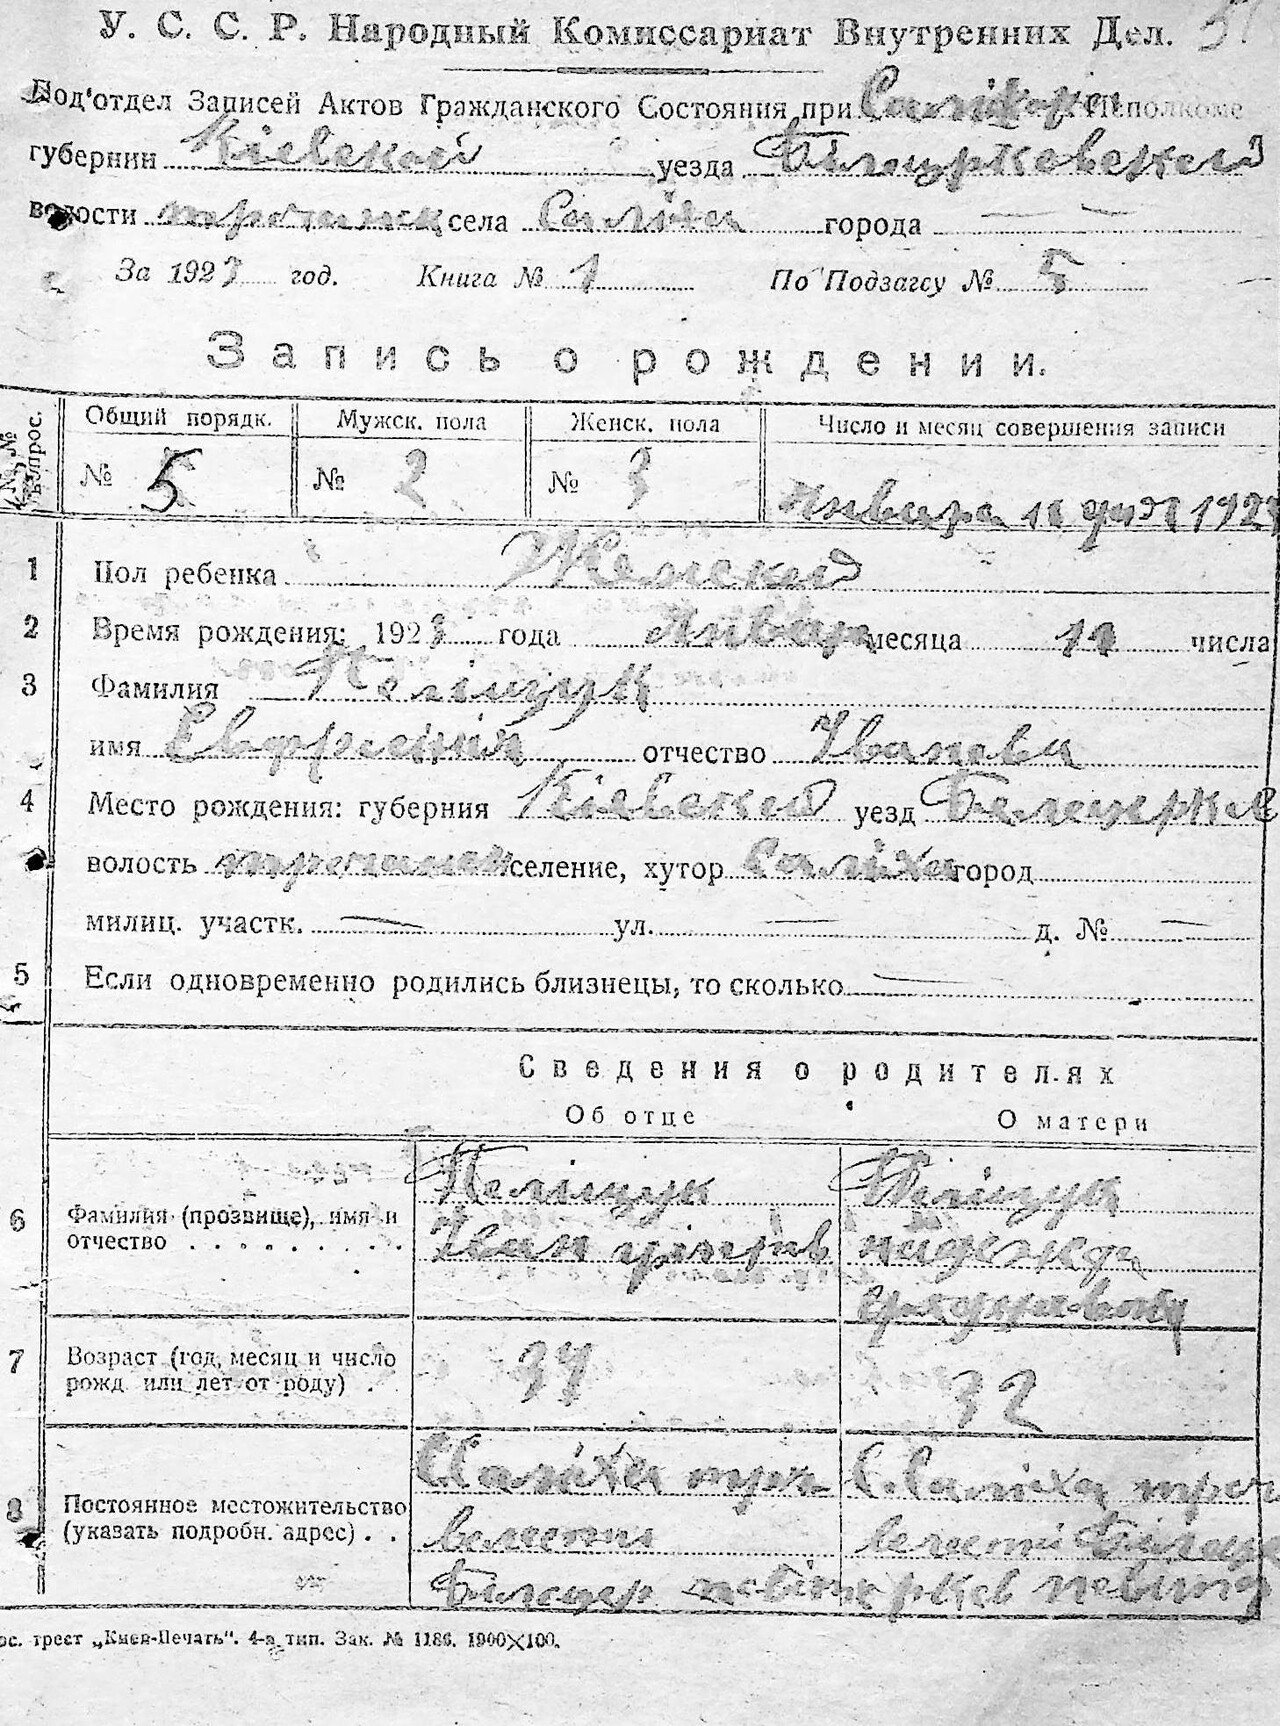 У. С. С. Р. Народный Комиссариат Внутренних Дел.
Под'отдел Записей Актов Гражданского Состояния при Исполкоме
губернии Кіевской уезда
волости села Саліха города —
За 1923 год. Книга № 1 По Подзагсу № 5
Запись о рождении.
№№ вопрос. Общий порядк. Мужск. пола Женск. пола Число и месяц совершения записи
№ 5 № 2 № 3 Января дня 1923
1 Пол ребенка Женский
2 Время рождения: 1923 года Января месяца 11 числа
3 Фамилия Поліщук
имя Евфросинія отчество Іванова
4 Место рождения: губерния Кіевской уезд Белоцерков
волость селение, хутор Саліха город
милиц. участк. — ул. — д. № —
5 Если одновременно родились близнецы, то сколько —
Сведения о родителях
Об отце О матери
6 Фамилия (прозвище), имя и отчество Поліщук Поліщук
Іван надежда
7 Возраст (год, месяц и число рожд. или лет от роду) 34 32
8 Постоянное местожительство (указать подробн. адрес) С. Саліха С. Саліха
волости волості
ос. трест „Киев-Печать". 4-а тип. Зак. № 1186. 1900×100.